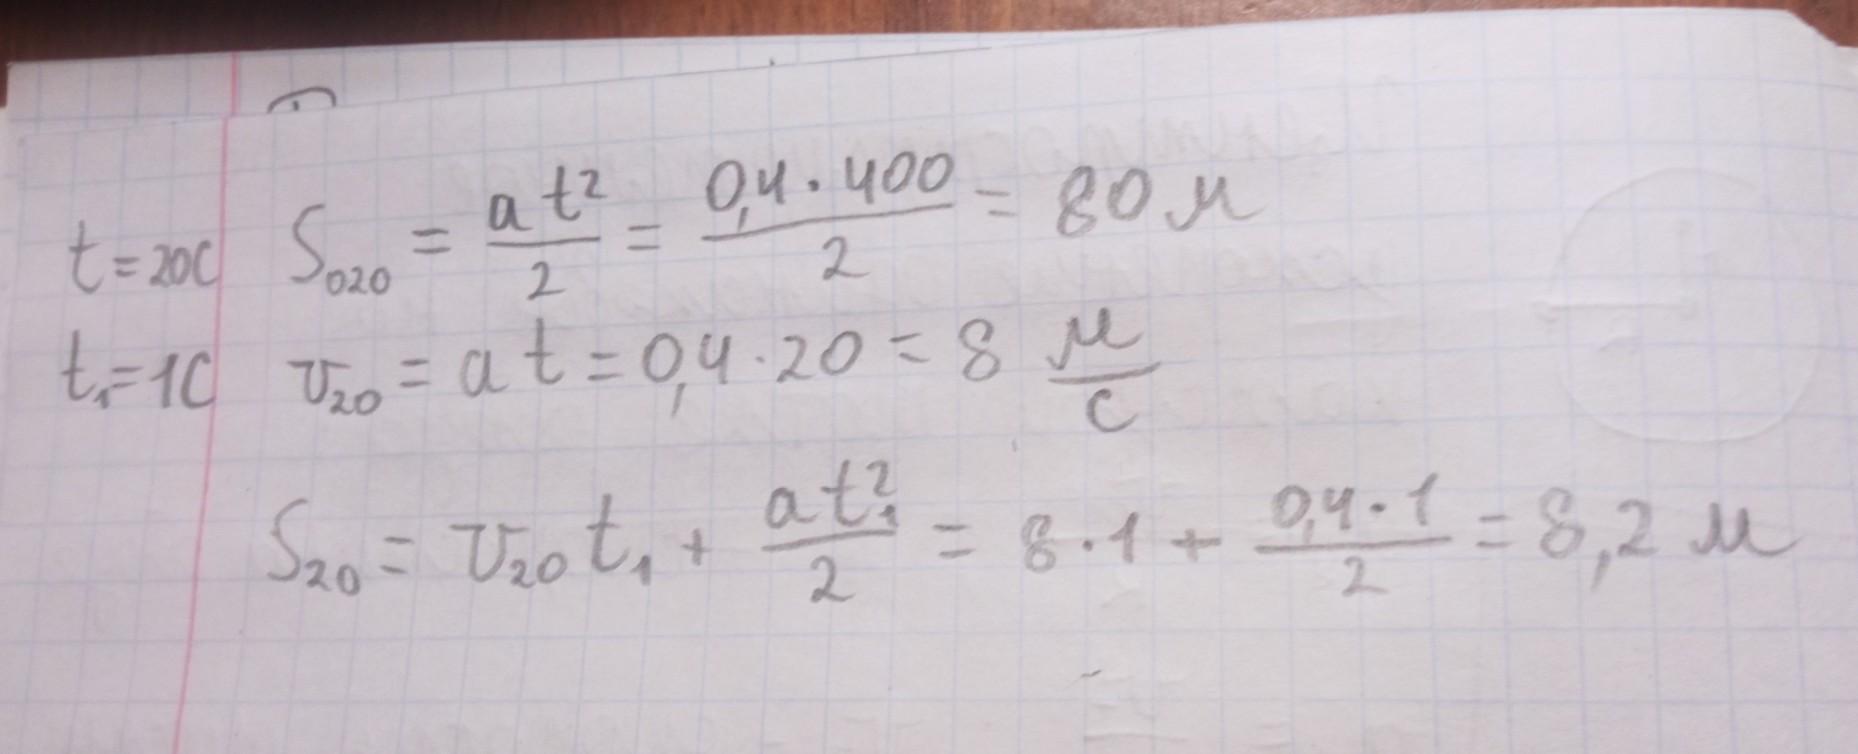 t=20c S₀₂₀ = at²/2 = 0,4·400/2 = 80 м
t₁=1c v₂₀ = at = 0,4·20 = 8 м/с
S₂₀ = v₂₀t₁ + at₁²/2 = 8·1 + 0,4·1/2 = 8,2 м